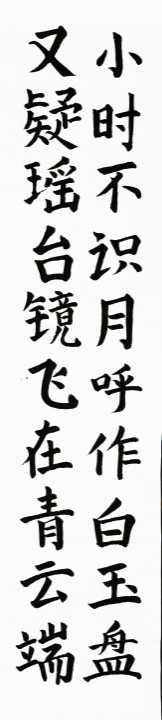 小时不识月呼作白玉盘
又疑瑶台镜飞在青云端